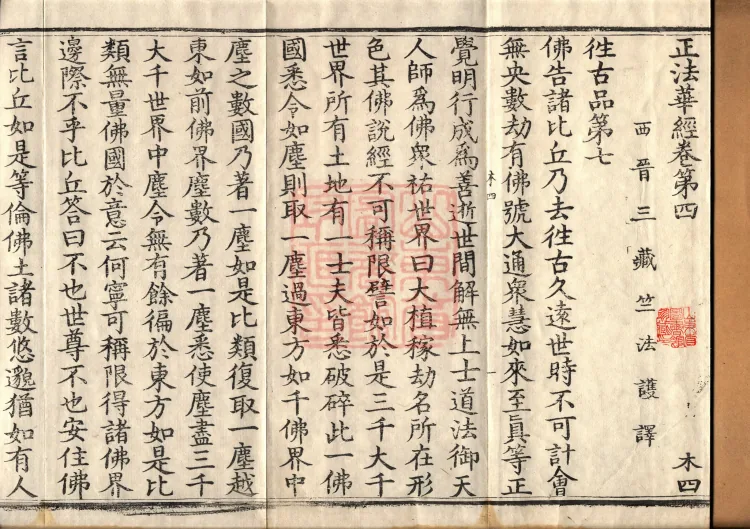 正法華經卷第四 木四
西晉三藏竺法護譯
徃古品第七
佛告諸比丘乃去徃古久遠世時不可計會
無央數劫有佛號大通衆慧如來至真等正
覺明行成爲善逝世間解無上士道法御天
木四
人師爲佛衆祐世界曰大植稼劫名所在形
色其佛說經不可稱限譬如於是三千大千
世界所有土地有一士夫皆悉破碎此一佛
國悉令如塵則取一塵過東方如千佛界中
塵之數國乃著一塵如是比類復取一塵越
東如前佛界塵數乃著一塵悉使塵盡三千
大千世界中塵令無有餘徧於東方如是比
類無量佛國於意云何寧可稱限得諸佛界
邊際不乎比丘答曰不也世尊不也安住佛
言比丘如是等倫佛土諸數悠邈猶如有人